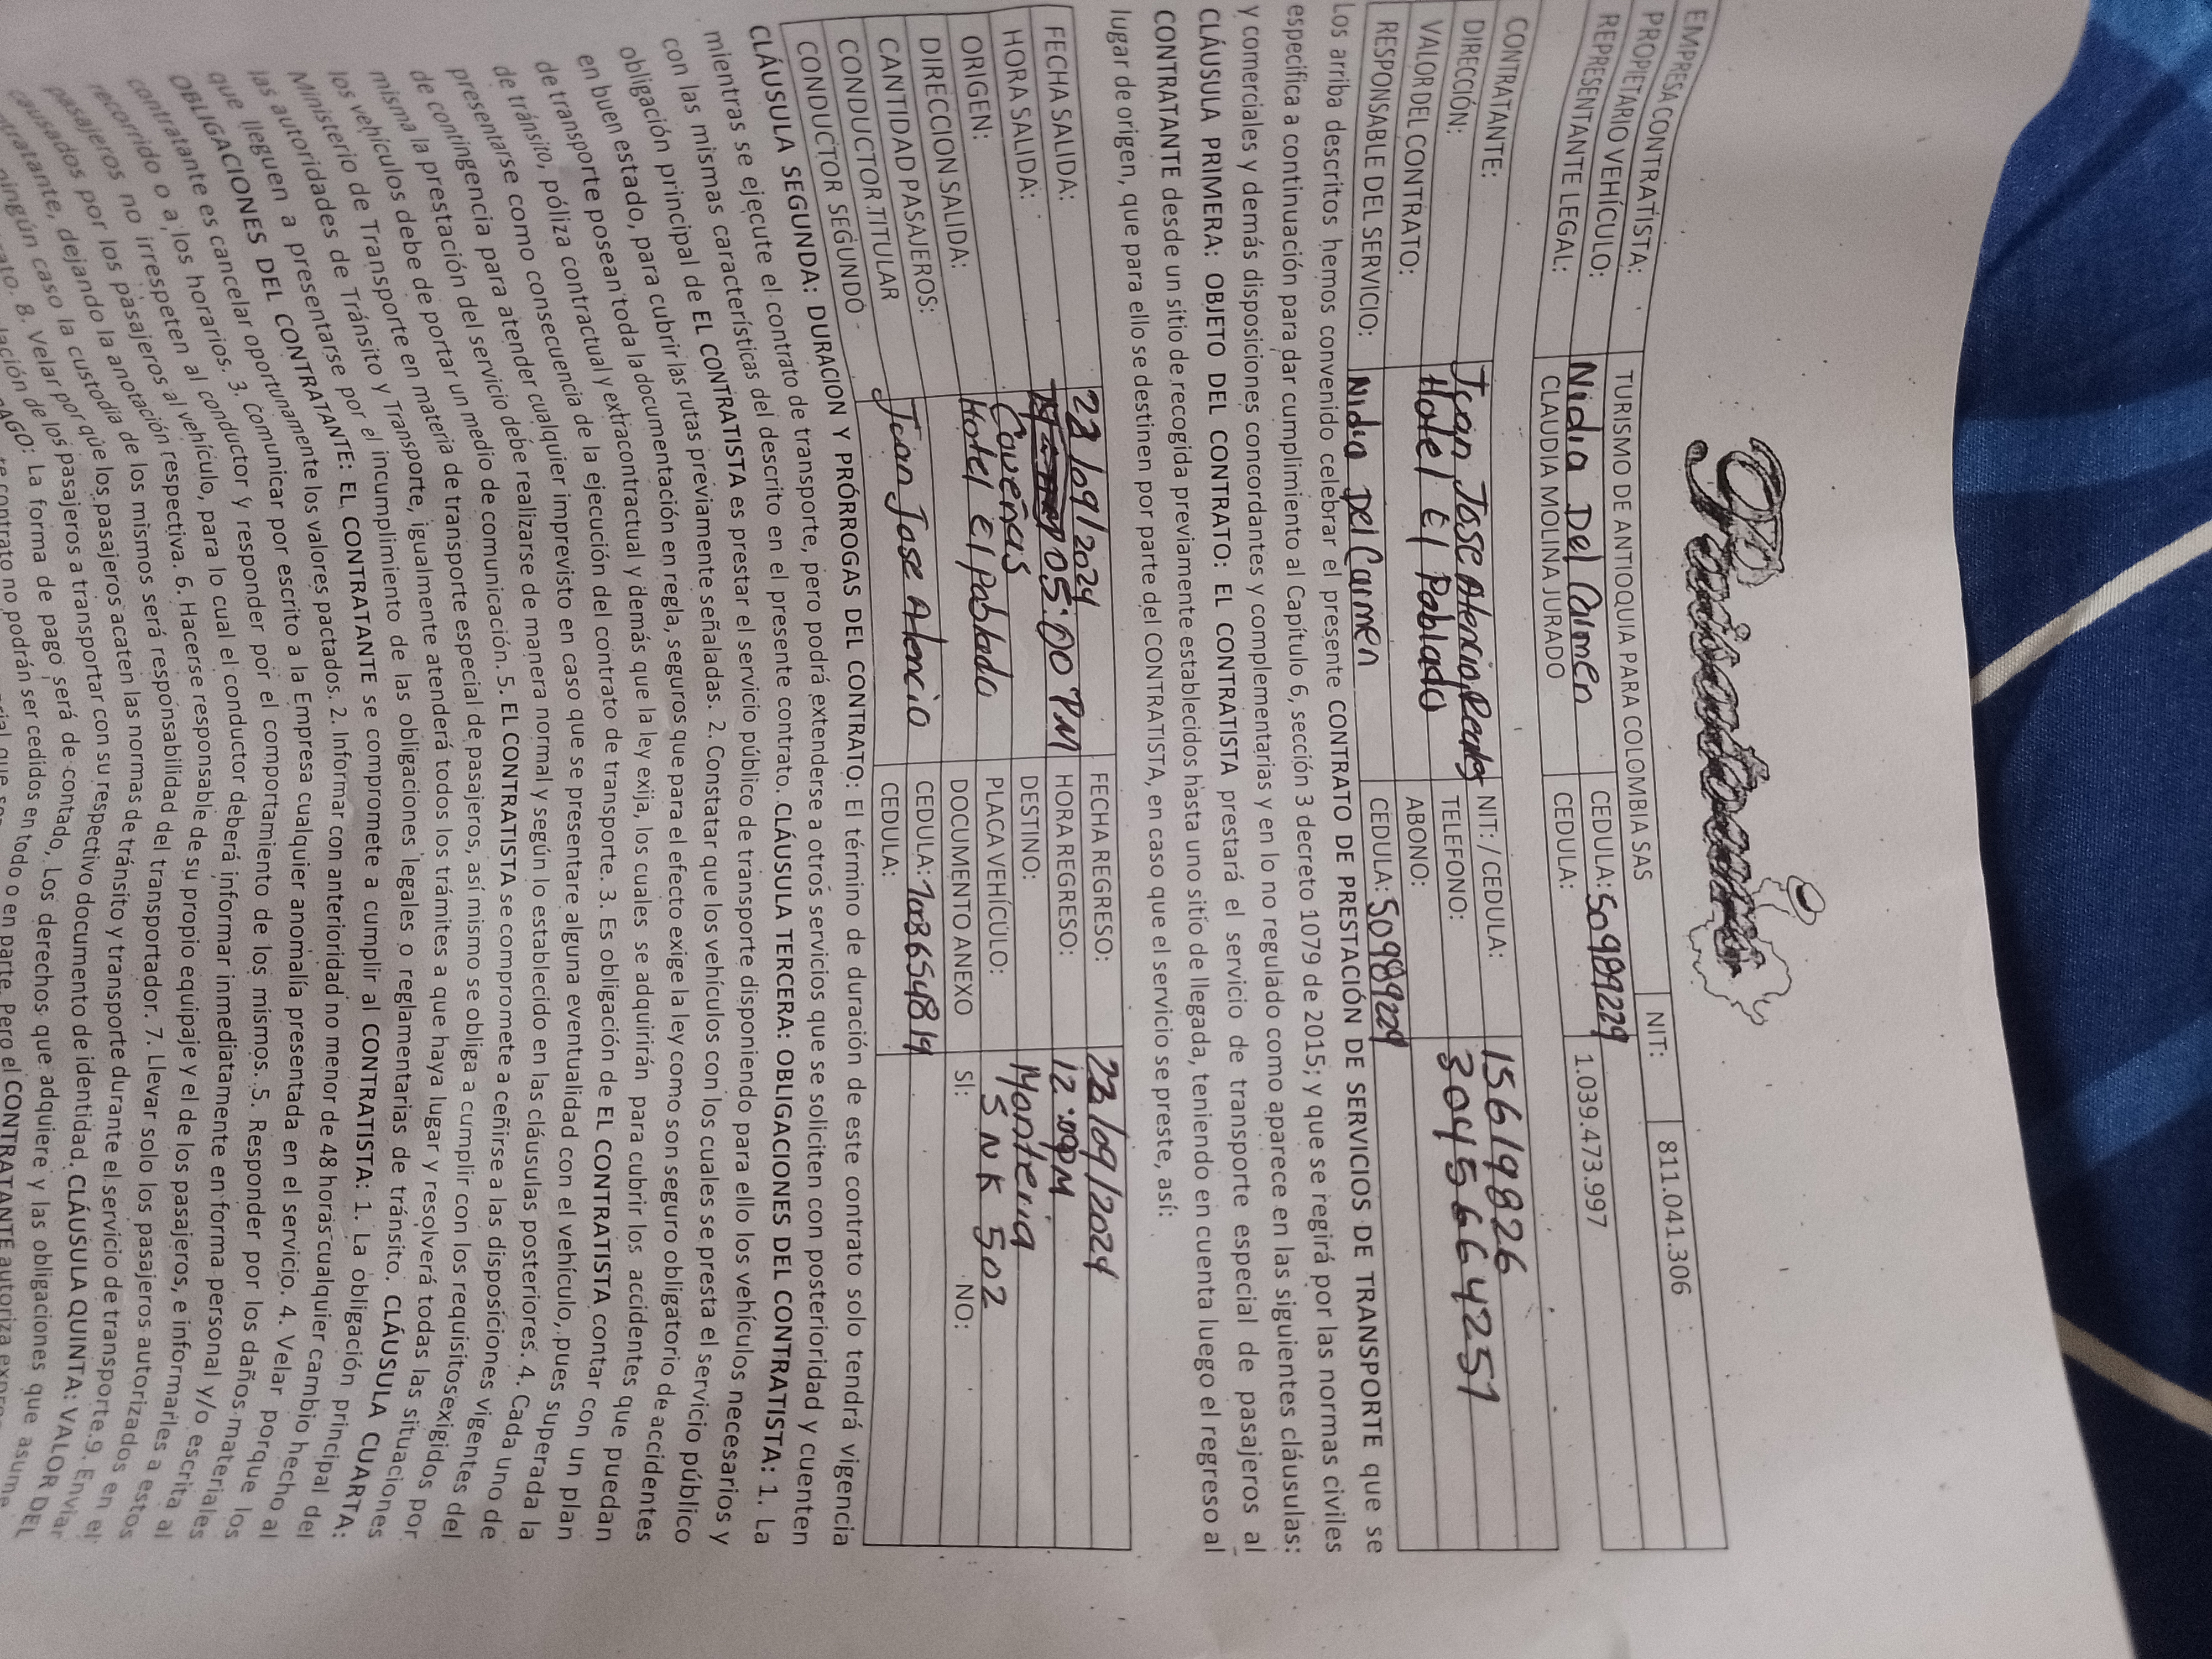 EMPRESA CONTRATISTA: TURISMO DE ANTIOQUIA PARA COLOMBIA SAS NIT: 811.041.306
PROPIETARIO VEHÍCULO: Nidia Del Carmen CEDULA: 50989229
REPRESENTANTE LEGAL: CLAUDIA MOLINA JURADO CEDULA: 1.039.473.997
CONTRATANTE: Juan Jose Atencio NIT: / CEDULA: 15619826
DIRECCIÓN: Hotel El Poblado TELEFONO: 3045664251
VALOR DEL CONTRATO: ABONO:
RESPONSABLE DEL SERVICIO: Nidia Del Carmen CEDULA: 50989229
Los arriba descritos hemos convenido celebrar el presente CONTRATO DE PRESTACIÓN DE SERVICIOS DE TRANSPORTE que se
especifica a continuación para dar cumplimiento al Capítulo 6, sección 3 decreto 1079 de 2015; y que se regirá por las normas civiles
y comerciales y demás disposiciones concordantes y complementarias y en lo no regulado como aparece en las siguientes cláusulas:
CLÁUSULA PRIMERA: OBJETO DEL CONTRATO: EL CONTRATISTA prestará el servicio de transporte especial de pasajeros al
CONTRATANTE desde un sitio de recogida previamente establecidos hasta uno sitio de llegada, teniendo en cuenta luego el regreso al
lugar de origen, que para ello se destinen por parte del CONTRATISTA, en caso que el servicio se preste, así:
FECHA SALIDA: 22/09/2024 FECHA REGRESO: 22/09/2024
HORA SALIDA: 05:00 PM HORA REGRESO: 12:00PM
ORIGEN: Coveñas DESTINO: Monteria
DIRECCION SALIDA: Hotel El Poblado PLACA VEHÍCULO: SNK 502
CANTIDAD PASAJEROS: DOCUMENTO ANEXO SI: NO:
CONDUCTOR TITULAR Juan Jose Atencio CEDULA: 1003654814
CONDUCTOR SEGUNDO CEDULA:
CLÁUSULA SEGUNDA: DURACION Y PRÓRROGAS DEL CONTRATO: El término de duración de este contrato solo tendrá vigencia
mientras se ejecute el contrato de transporte, pero podrá extenderse a otros servicios que se soliciten con posterioridad y cuenten
con las mismas características del descrito en el presente contrato. CLÁUSULA TERCERA: OBLIGACIONES DEL CONTRATISTA: 1. La
obligación principal de EL CONTRATISTA es prestar el servicio público de transporte disponiendo para ello los vehículos necesarios y
en buen estado, para cubrir las rutas previamente señaladas. 2. Constatar que los vehículos con los cuales se presta el servicio público
de transporte posean toda la documentación en regla, seguros que para el efecto exige la ley como son seguro obligatorio de accidentes
de tránsito, póliza contractual y extracontractual y demás que la ley exija, los cuales se adquirirán para cubrir los accidentes que puedan
presentarse como consecuencia de la ejecución del contrato de transporte. 3. Es obligación de EL CONTRATISTA contar con un plan
de contingencia para atender cualquier imprevisto en caso que se presentare alguna eventualidad con el vehículo, pues superada la
misma la prestación del servicio debe realizarse de manera normal y según lo establecido en las cláusulas posteriores. 4. Cada uno de
los vehículos debe de portar un medio de comunicación. 5. EL CONTRATISTA se compromete a ceñirse a las disposiciones vigentes del
Ministerio de Transporte en materia de transporte especial de pasajeros, así mismo se obliga a cumplir con los requisitosexigidos por
las autoridades de Tránsito y Transporte, igualmente atenderá todos los trámites a que haya lugar y resolverá todas las situaciones
que lleguen a presentarse por el incumplimiento de las obligaciones legales o reglamentarias de tránsito. CLÁUSULA CUARTA:
OBLIGACIONES DEL CONTRATANTE: EL CONTRATANTE se compromete a cumplir al CONTRATISTA: 1. La obligación principal del
contratante es cancelar oportunamente los valores pactados. 2. Informar con anterioridad no menor de 48 horas cualquier cambio hecho al
recorrido o a los horarios. 3. Comunicar por escrito a la Empresa cualquier anomalía presentada en el servicio. 4. Velar porque los
pasajeros no irrespeten al conductor y responder por el comportamiento de los mismos. 5. Responder por los daños materiales
causados por los pasajeros al vehículo, para lo cual el conductor deberá informar inmediatamente en forma personal y/o escrita al
contratante, dejando la anotación respectiva. 6. Hacerse responsable de su propio equipaje y el de los pasajeros, e informarles a estos
ningún caso la custodia de los mismos será responsabilidad del transportador. 7. Llevar solo los pasajeros autorizados en el
8. Velar por que los pasajeros acaten las normas de tránsito y transporte durante el servicio de transporte.9. Enviar
de los pasajeros a transportar con su respectivo documento de identidad. CLÁUSULA QUINTA: VALOR DEL
La forma de pago será de contado. Los derechos que adquiere y las obligaciones que asume
contrato no podrán ser cedidos en todo o en parte. Pero el CONTRATANTE autoriza